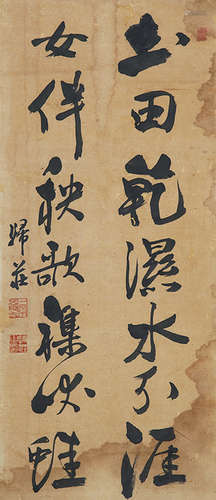 田乾濕水分涯
女伴秧歌襍吠蛙
歸莊